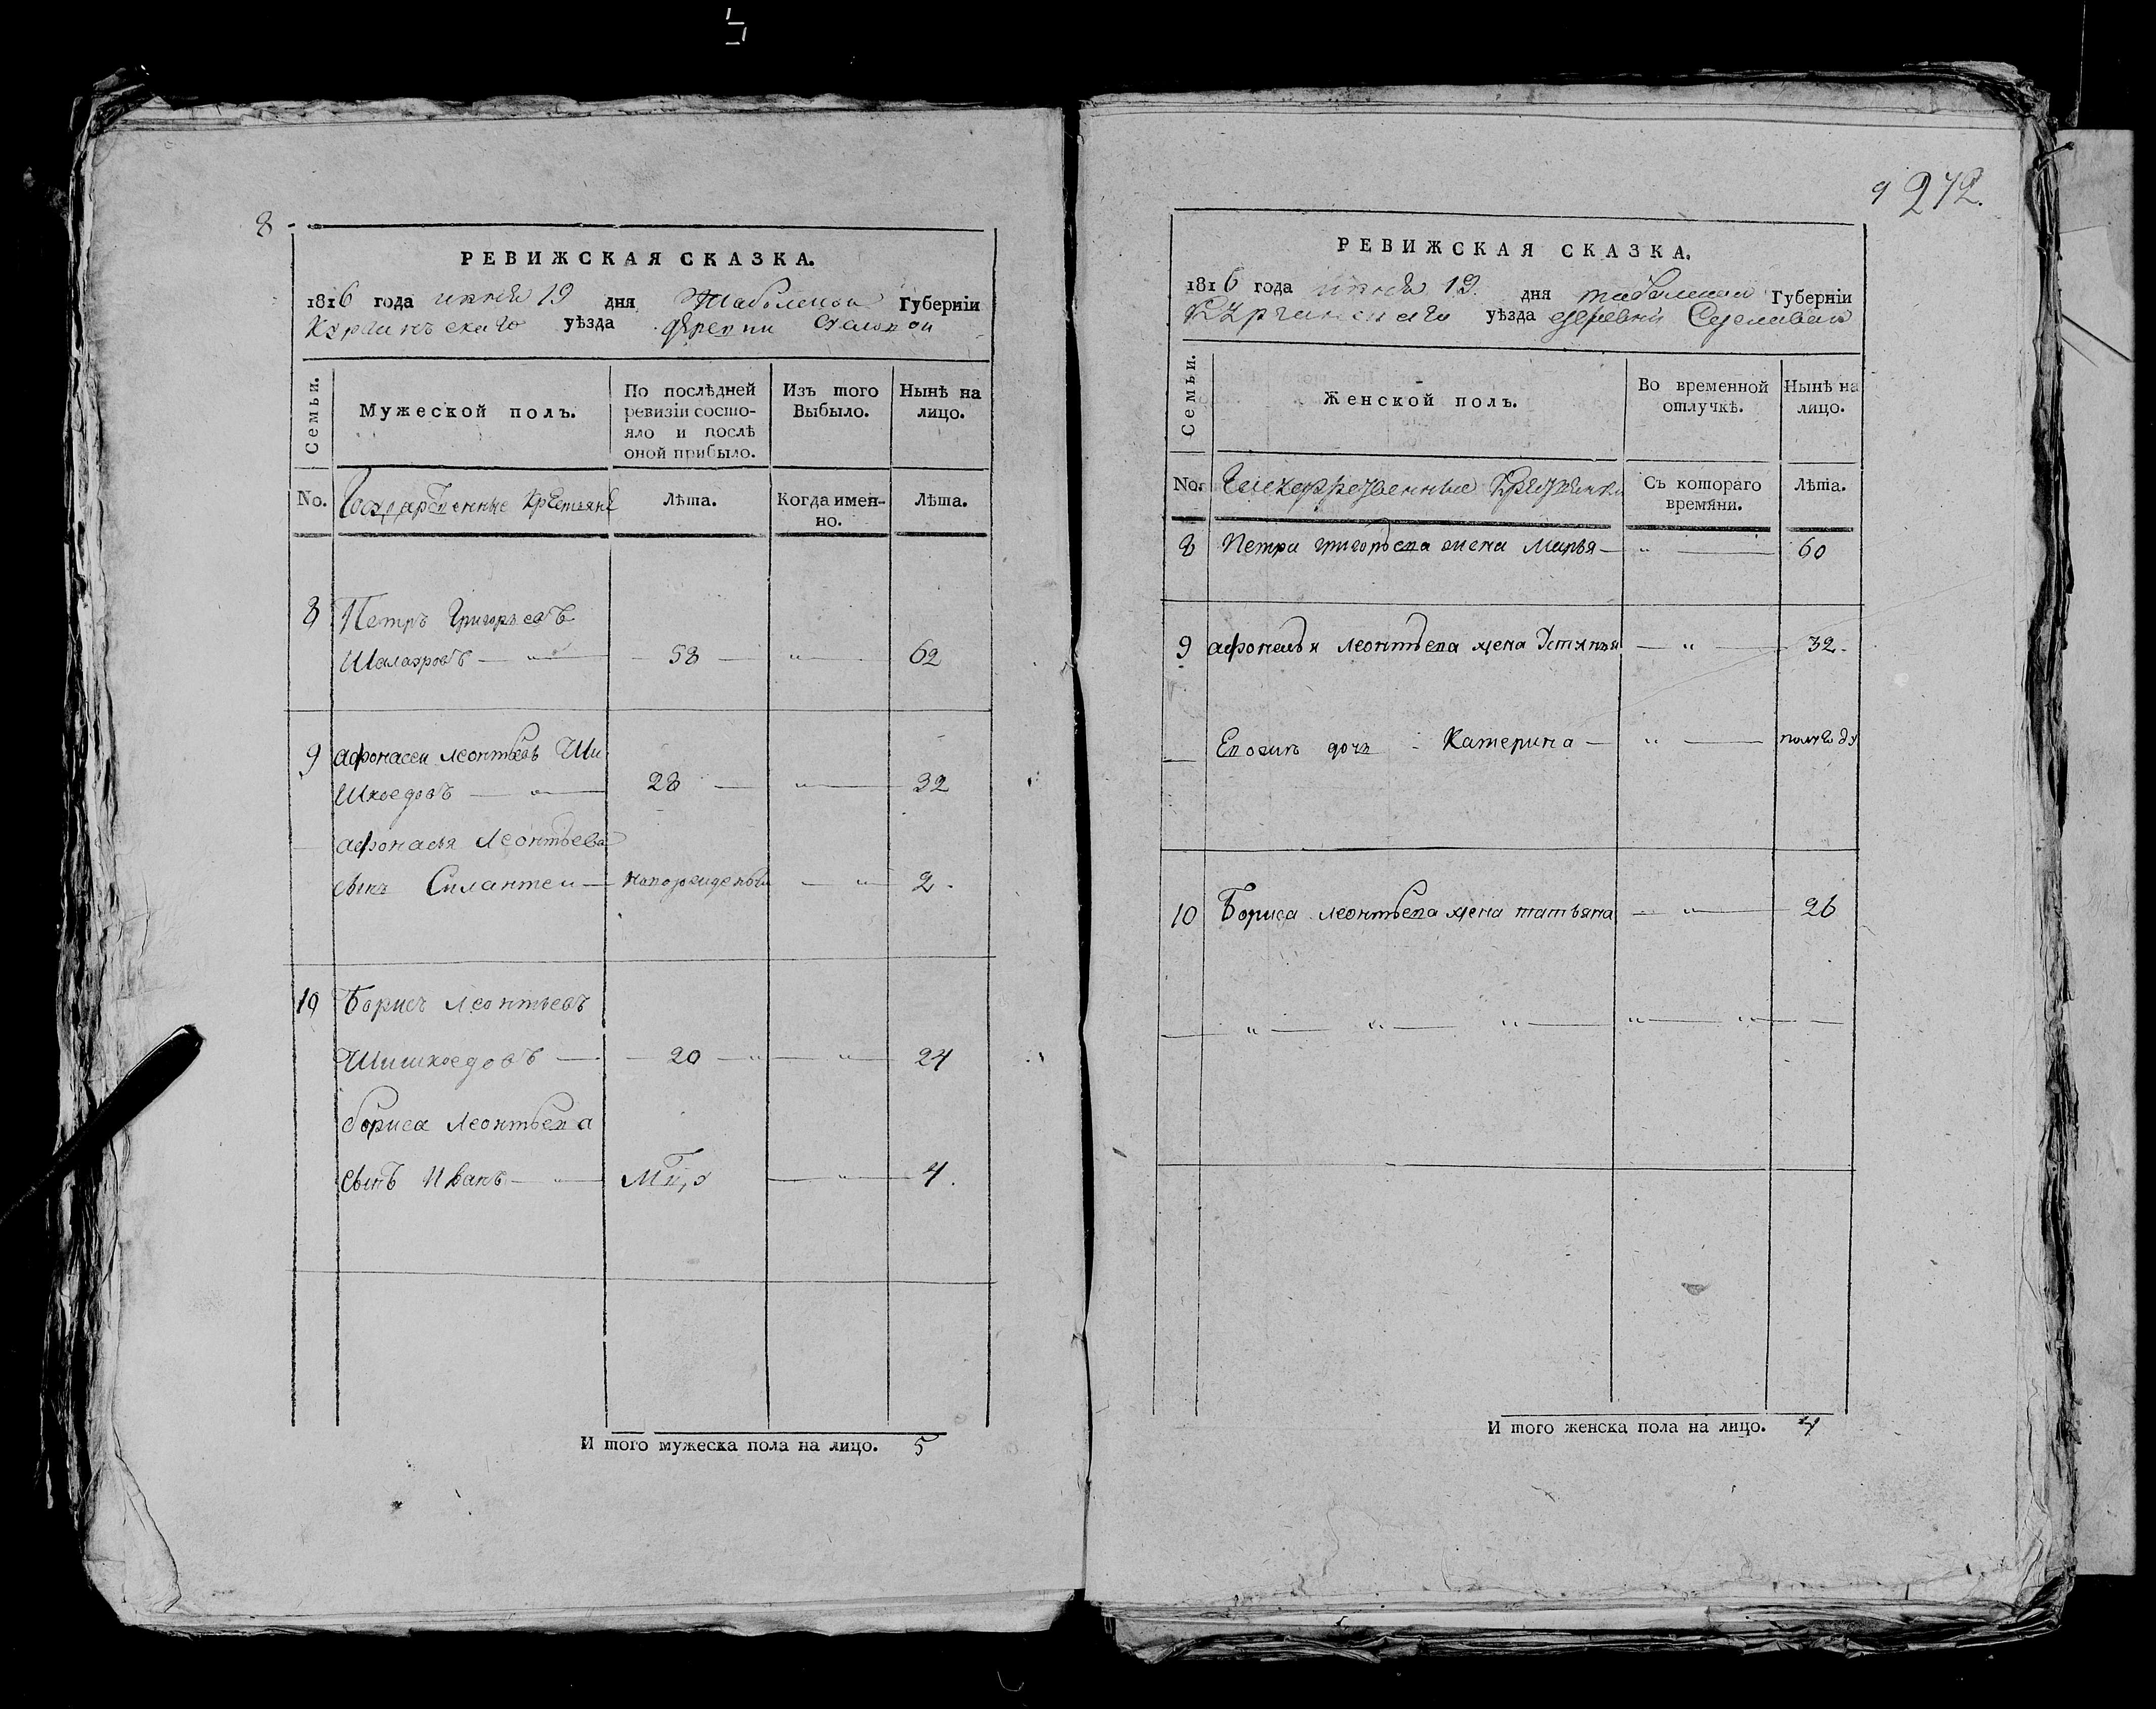 8
РЕВИЖСКАЯ СКАЗКА.
1816 года июня 19 дня Тобольской Губерніи
Курганскаго уѣзда деревни
Семьи.
Мужеской полъ.
По послѣдней ревизіи состояло и послѣ оной прибыло.
Изъ того Выбыло.
Нынѣ на лицо.
No.
Государственные крестьяне
Лѣта.
Когда именно.
Лѣта.
8 Петръ Григорьевъ
58 — " — 62
9 Афонасеи Леонтьевъ Ши
шкоедовъ — " — 28 — " — 32
Афонасья Леонтьева
сынъ Силантеи — новорожденъ — " — 2.
10 Борисъ Леонтьевъ
Шишкоедовъ — 20 — " — " — 24
бориса Леонтьева
сынъ Иванъ — " — " — 4.
И того мужеска пола на лицо. 5
9 272.
РЕВИЖСКАЯ СКАЗКА.
1816 года июня 19. дня тобольской Губерніи
Курганскаго уѣзда деревни
Семьи.
Женской полъ.
Во временной отлучкѣ.
Нынѣ на лицо.
No.
Съ котораго времяни.
Лѣта.
8 Петра григорьева жена Марья — " — 60
9 афонасья леонтьева жена Устинья — " — 32.
Евогинъ дочь - Катерина — " — полъгоду
10 Бориса леонтьева жена татьяна — " — 26
— " — " — " — " — " —
И того женска пола на лицо. 4